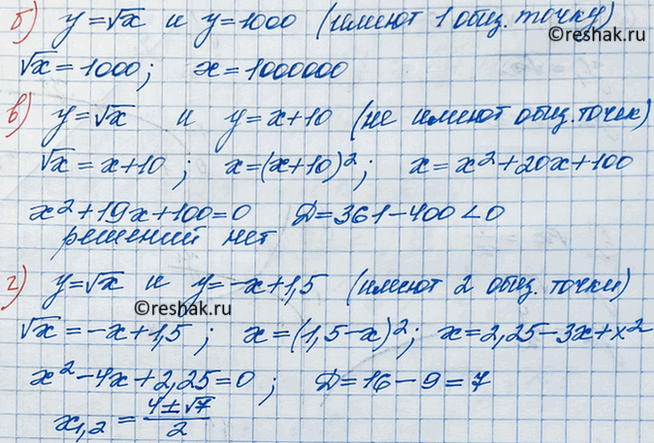 б) y=√x и y=1000 (имеют 1 общ. точку)
©reshak.ru
√x=1000; x=1000000
в) y=√x и y=x+10 (не имеют общ. точек)
√x=x+10; x=(x+10)²; x=x²+20x+100
x²+19x+100=0 D=361-400<0
решений нет
г) y=√x и y=-x+1,5 (имеют 2 общ. точки)
©reshak.ru
√x=-x+1,5; x=(1,5-x)²; x=2,25-3x+x²
x²-4x+2,25=0; D=16-9=7
x₁,₂=(4±√7)/2